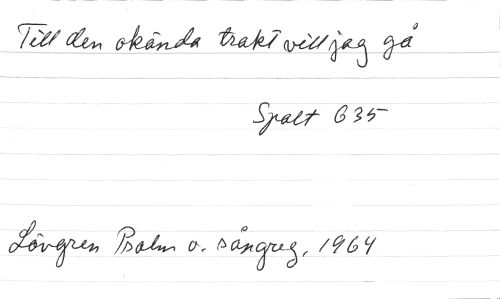 Till den okända trakt vill jag gå
Spalt 635
Lövgren Psalm o. sångreg. 1964